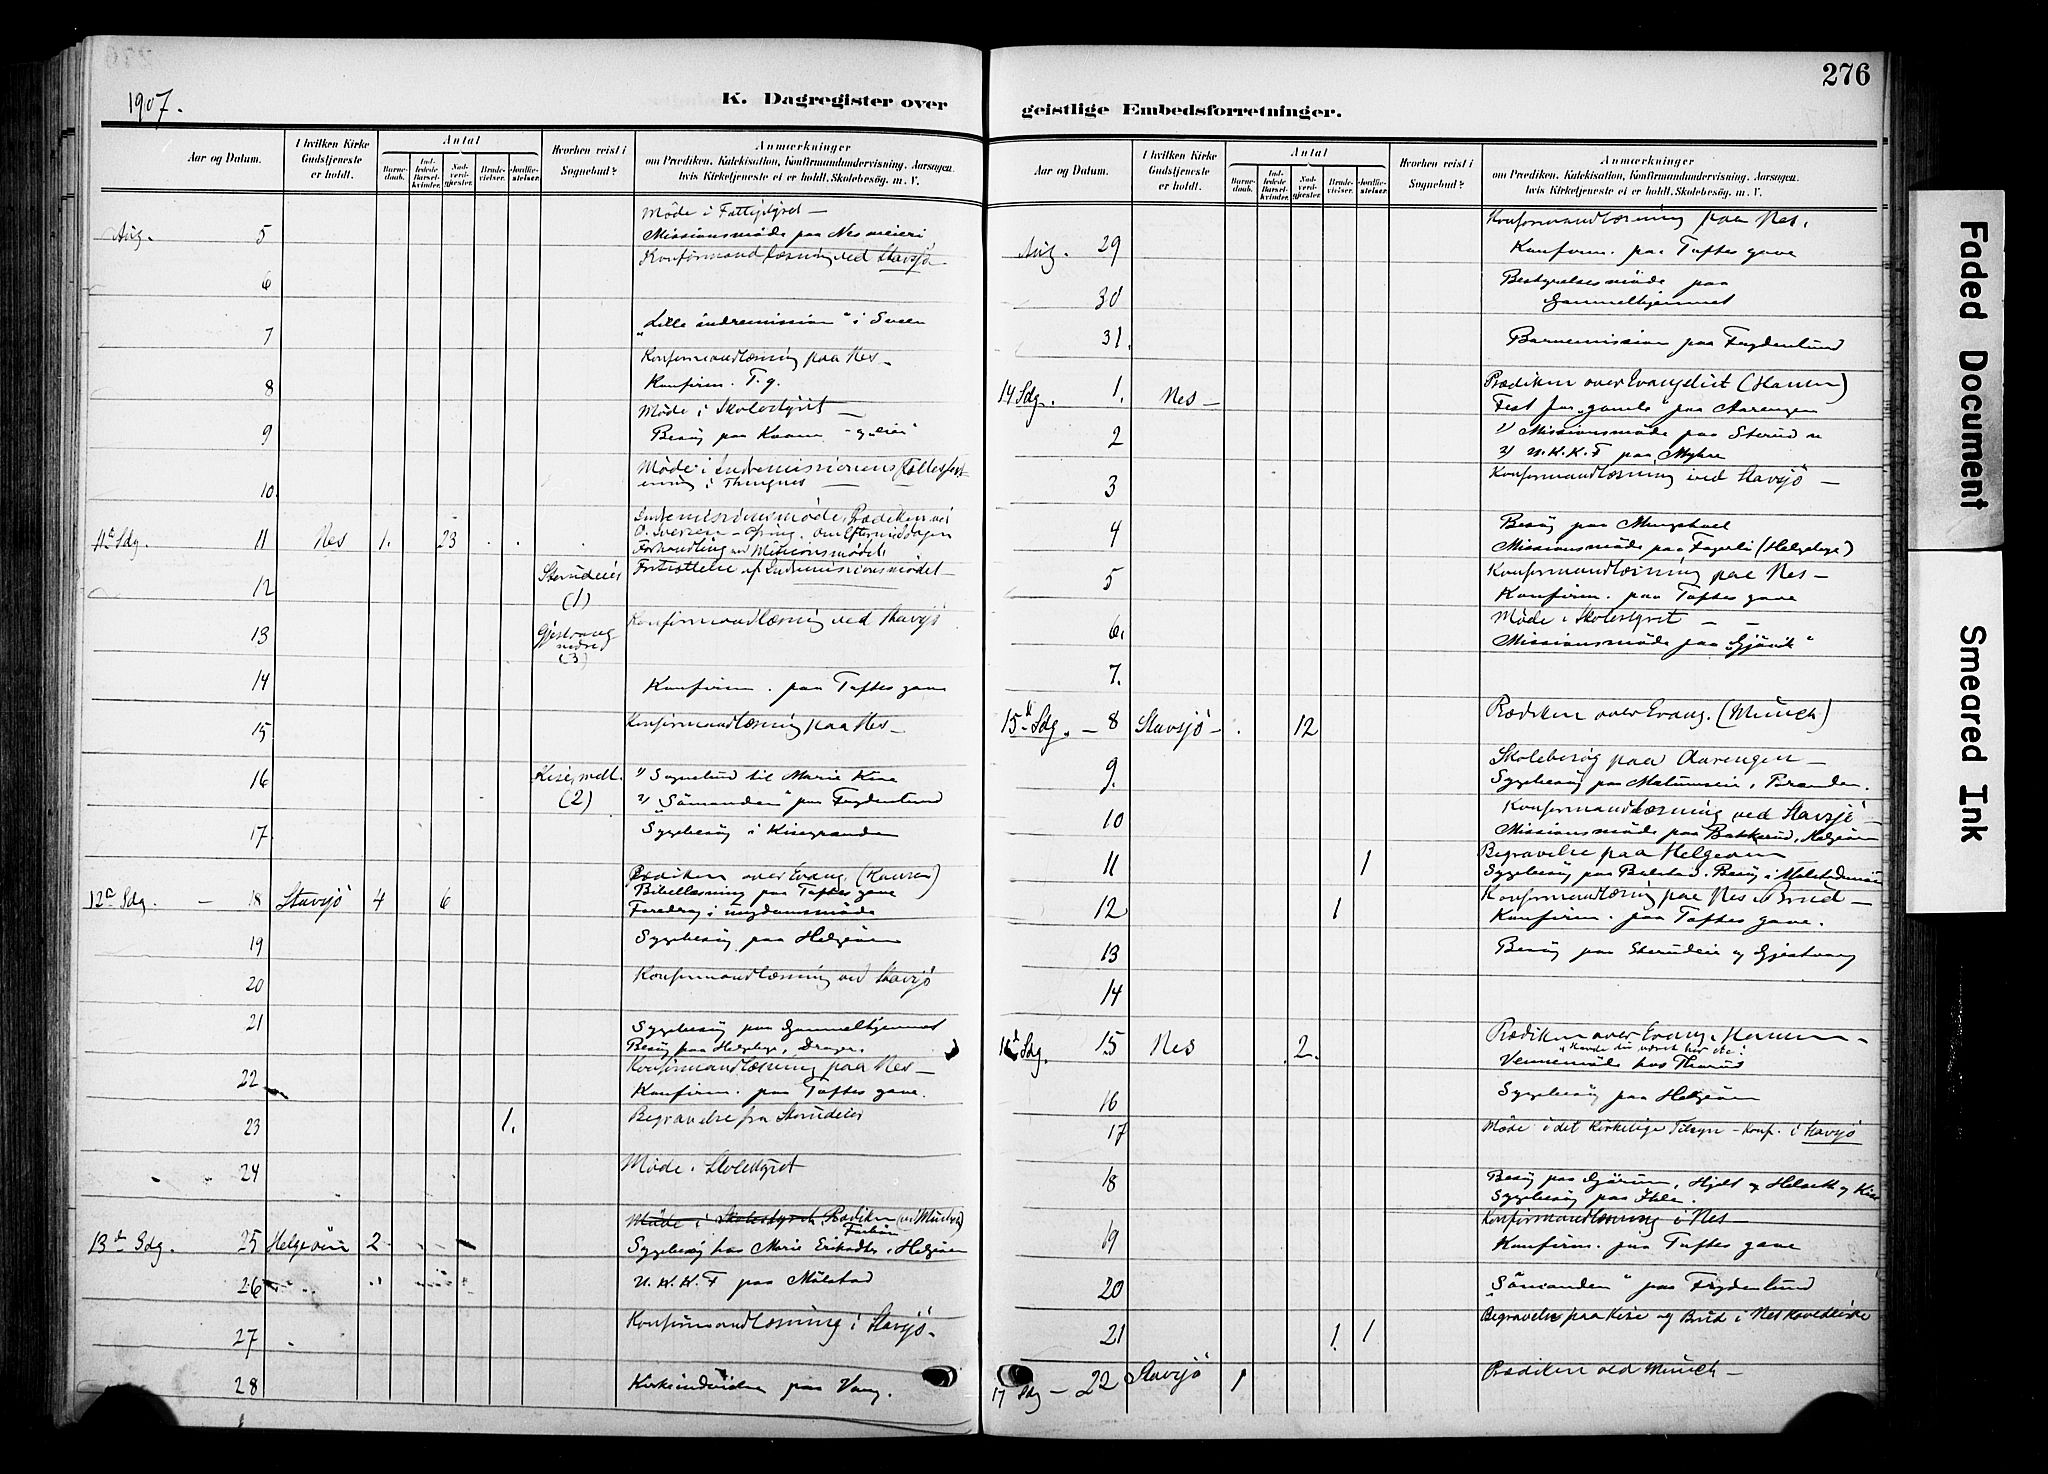 276
1907.
K. Dagregister over
geistlige Embedsforretninger.
Aar og Datum.
I hvilken Kirke Gudstjeneste er holdt.
Antal
Barnedaab.
Indledede Barselkvinder.
Nadverdgjester.
Brudevielser.
Jordfæstelser.
Hvorhen reist i Sognebud?
Anmærkninger
om Prædiken, Katekisation, Konfirmandundervisning, Aarsagen,
hvis Kirketjeneste ei er holdt, Skolebesøg, m. V.
Aug. 5
Møde i Fattigstyret —
Missionsmøde paa Nes meieri
6
Konfirmandlæsning ved Stavsjø
7
"Lille indremission" i Sveen
8
Konfirmandlæsning paa Nes —
Konfirm. T. g.
9
Møde i Skolestyret —
Besøg paa
10.
Møde i Indremissionens
11te Sdg. 11 Nes 1. 23
Indremissionsmøde, Prædiken ved
O. Iversen
Forhandling ved Missionsmødet
12 Sterudeie (1)
Fortsættelse af Indremissionsmødet —
13 Gjestvang nedre (3)
Konfirmandlæsning ved Stavsjø
14
Konfirm. paa Toftes gave
15
Konfirmandlæsning paa Nes —
16 (2)
1) Sognebud til Marie Kise
2) "Sömanden" paa Frydenlund
17.
Sygebesøg i Kisegranden
12te Sdg. — 18 Stavsjö 4 6
Prædiken over Evang. (Hansen)
Bibellæsning paa Toftes gave
Foredrag i ungdomsmøde
19
Sygebesøg paa Helgøen
20
Konfirmandlæsning ved Stavsjö
21
Sygebesøg paa Gammelhjemmet
Besøg paa
22
Konfirmandlæsning paa Nes —
Konfirm. paa Toftes gave.
23 1.
Begravelse fra Sterudeie
24
Møde i Skolestyret
13de Sdg. 25 Helgøen 2
Møde i Skolestyret Prædiken (ved Münch)
Sygebesøg hos Marie Helgøen
26
U. K. K. F paa Mælstad
27
Konfirmandlæsning i Stavsjö.
28
Kirkeindvielse paa Vang.
Aar og Datum.
I hvilken Kirke Gudstjeneste er holdt.
Antal
Barnedaab.
Indledede Barselkvinder.
Nadverdgjester.
Brudevielser.
Jordfæstelser.
Hvorhen reist i Sognebud?
Anmærkninger
om Prædiken, Katekisation, Konfirmandundervisning, Aarsagen,
hvis Kirketjeneste ei er holdt, Skolebesøg, m. V.
Aug. 29
Konfirmandlæsning paa Nes.
Konfirm. paa Toftes gave
30
Bestyrelsesmøde paa
Gammelhjemmet
31.
Barnemission paa Frydenlund
14 Sdg. 1. Nes —
Prædiken over Evangeliet (Hansen)
Fest for "gamle" paa Aarengen
2
1) Missionsmøde paa Sterud
2) U. K. K. F paa Myhre
3
Konfirmandlæsning ved Stavsjö —
4
Besøg paa
Missionsmøde paa Fagerli (Helgøen)
5
Konfirmandlæsning paa Nes —
Konfirm. paa Toftes gave
6.
Møde i Skolestyret —
Missionsmøde paa "Gjövik"
7.
15de Sdg. — 8 Stavsjö — 12
Prædiken over Evang. (Münch)
9.
Skolebesøg paa Aarengen —
Sygebesøg paa
10
Konfirmandlæsning ved Stavsjö —
Missionsmøde paa Bakkerud, Helgøen
11 1
Begravelse paa Helgøen
Sygebesøg paa
12 1
Konfirmandlæsning paa Nes. Brud —
Konfirm. paa Toftes gave.
13
Besøg paa Sterudeie og Gjestvang
14
16de Sdg. 15 Nes 2.
Prædiken over Evang. Hansen —
"Havde du været her etc."
Vennemøde hos
16
Sygebesøg paa Helgøen
17
Møde i det kirkelige Tilsyn — Konf. i Stavsjö
18
Besøg paa Hjelt og
Sygebesøg paa Ihle.
19
Konfirmandlæsning i Nes —
Konfirm. paa Toftes gave
20
"Sömanden" paa Frydenlund
21 1. 1
Begravelse paa Kise og Brud i Nes Hovedkirke
17 Sdg — 22 Stavsjö 1
Prædiken ved Münch —
Faded Document
Smeared Ink